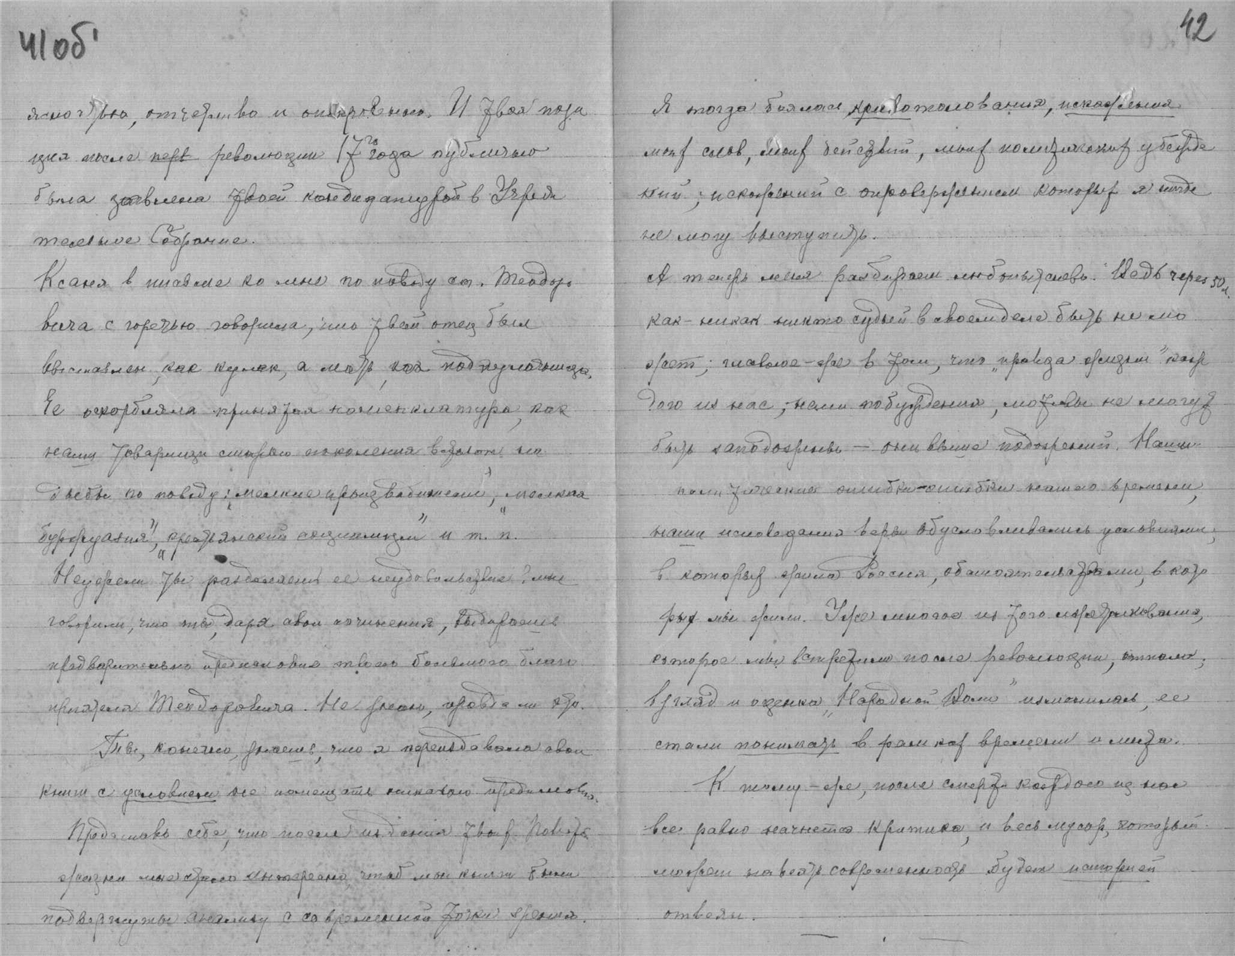 41об
ясностью, отчетливо и откровенно. И твоя пози
ция после перв революции 17го года публично
была заявлена твоей кандидатурой в Учреди
тельное Собрание.
Ксаня в письме ко мне по поводу ст. Теодоро
вича с горечью говорила, что твой отец был
выставлен, как кулак, а мать, как подкулачница.
Ее оскорбляла принятая номенклатура, как
наши товарищи старого поколения
по поводу: "мелкие производители", "мелкая
буржуазия", "крестьянский социализм" и т. п.
Неужели ты разделяешь ее неудовольствие? мне
говорили, что ты, даря свои сочинения, выдираешь
предварительно предисловия твоего большого благо
приятеля Теодоровича. Не знаю, правда ли это.
Ты, конечно, знаешь, что я переиздавала свои
книги с условием не помещать никакого предисловия.
Представь себе, что после издания твоих Повест
жизни мне стало интересно, чтоб мои книги были
подвергнуты анализу с современной точки зрения.
42
Я тогда боялась кривотолкования, искажения
моих слов, моих действий, моих политических убежде
ний; искажений с опровержением которых я нигде
не могу выступить.
А теперь меня разбирает любопытство. Ведь через 50 л.
как-никак никто судьей в своем деле быть не мо
жет; главное-же в том, что "правда жизни" каж
дого из нас, наши побуждения, мотивы не могут
быть заподозрены — они выше подозрений. Наши
политические ошибки-ошибки нашего времени,
наши исповедания веры обусловливались условиями,
в которых жила Россия, обстоятельствами, в кото
рых мы жили. Уже многое из того
которое мы встретили после революции, отпало,
взгляд и оценка "Народной Воли" изменилась, ее
стали понимать в рамках времени и места.
К тому-же, после смерти каждого из нас
все равно начнется критика, и весь мусор, который
может навеять современность будет историей
отвеян.